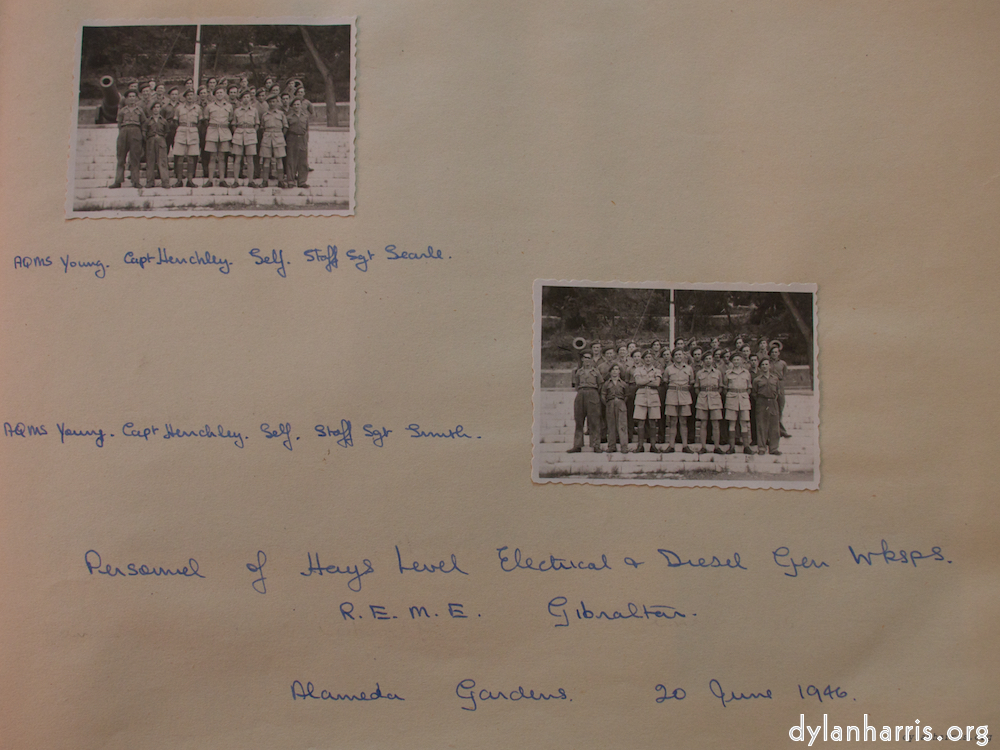 AQMS Young. Capt Henchley. Self. Staff Sgt Searle.
AQMS Young. Capt Henchley. Self. Staff Sgt Smith.
Personnel of Hays Level Electrical & Diesel Gen Wksps.
R.E.M.E. Gibraltar.
Alameda Gardens. 20 June 1946.
dylanharris.org